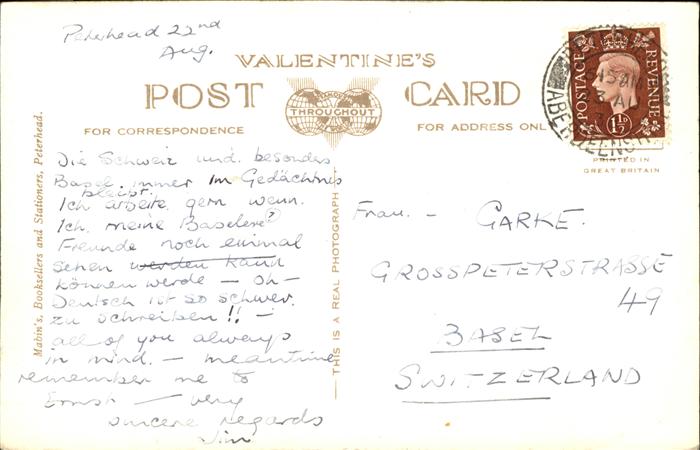 Peterhead 22nd
Aug.
VALENTINE'S
POST CARD
THROUGHOUT
FOR CORRESPONDENCE
FOR ADDRESS ONLY
POSTAGE REVENUE
1½D
PRINTED IN
GREAT BRITAIN
Mabin's, Booksellers and Stationers, Peterhead.
THIS IS A REAL PHOTOGRAPH
Die Schweiz und besondes
Basel immer im Gedächtnis
bleibt.
Ich arbeite gern wenn.
Ich meine Baselere?
Freunde noch einmal
sehen werden kann
können werde — Oh —
Deutsch ist so schwer.
zu schreiben!! —
all of you always
in mind. — meantime
remember me to
Ernst — very
sincere regards
Jim
Frau. — GARKE.
GROSSPETERSTRASSE
49
BASEL
SWITZERLAND